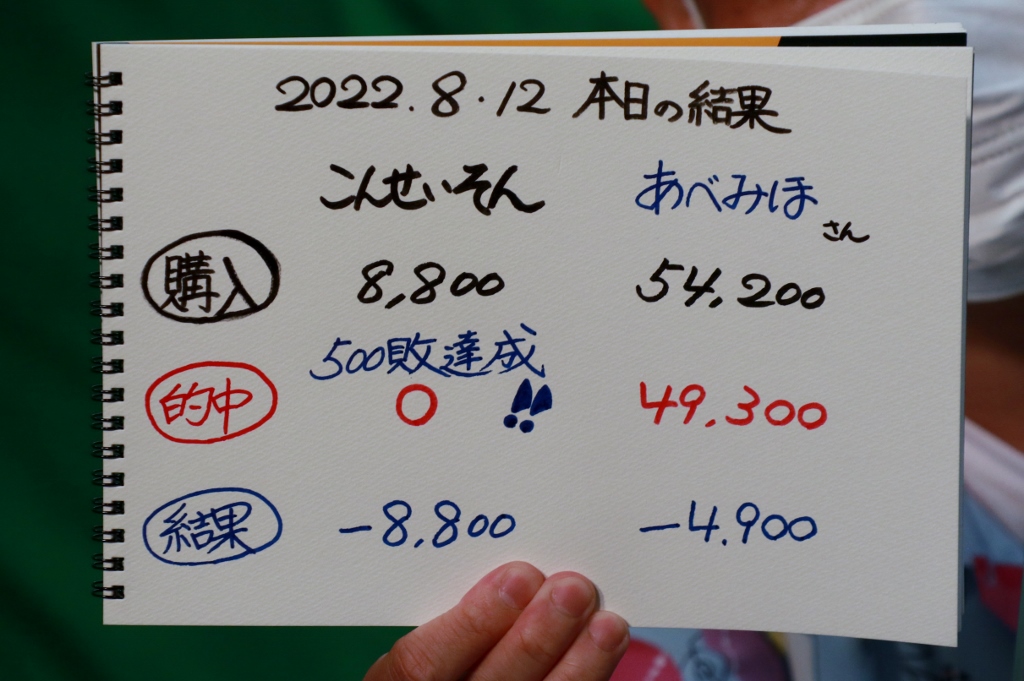 2022.8.12 本日の結果
こんせいそん あべみほさん
購入 8,800 54,200
500敗達成!!
的中 0 49,300
結果 -8,800 -4,900